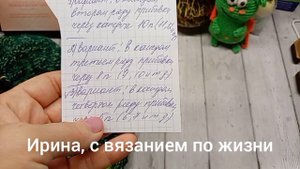 втором ряду прибавк
через каждые 10 п (11,12
2) вариант: в каждом
третьем ряду прибавк
через 8 п (9, 10 и т.д)
3) вариант: в каждом
четвертом ряду прибавк
через 5 п (6, 7 и т.д)
Ирина, с вязанием по жизни